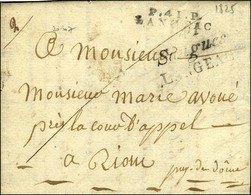 1825
P.41.P.
LANGEAC
Saugues
LANGEAC
A Monsieur
Monsieur Marie avoué
près la cour d'appel
a Riom
puy-de-dôme